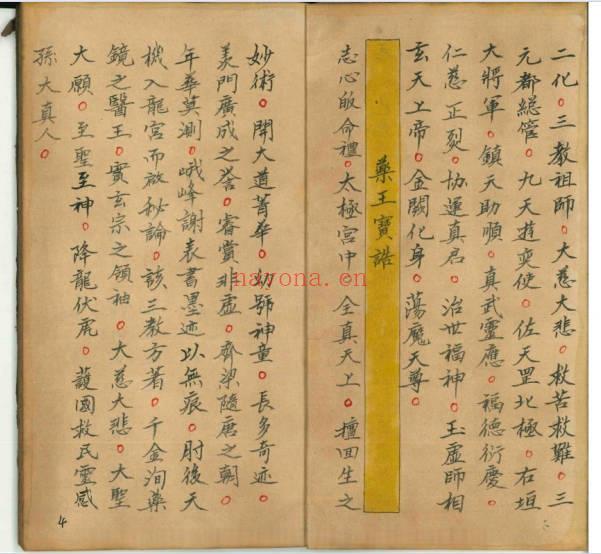 二化。三教祖師。大慈大悲。救苦救難。三
元都總管。九天遊奕使。佐天罡北極。右垣
大將軍。鎮天助順。真武靈應。福德衍慶。
仁慈正烈。協運真君。治世福神。玉虛師相
玄天上帝。金闕化身。蕩魔天尊。
藥王寶誥
志心皈命禮。太極宮中。全真天上。擅回生之
妙術。開大道菁華。幼號神童。長多奇迹。
羨門廣成之誉。睿賞非虛。齊梁隨唐之朝。
年華莫測。峨峰謝表書墨迹以無痕。肘後天
機入龍宮而啟秘論。該三教方著。千金洵藥
鏡之醫王。實玄宗之領袖。大慈大悲。大聖
大願。至聖至神。降龍伏虎。護國救民靈感
孫大真人。
4
nayona.cn